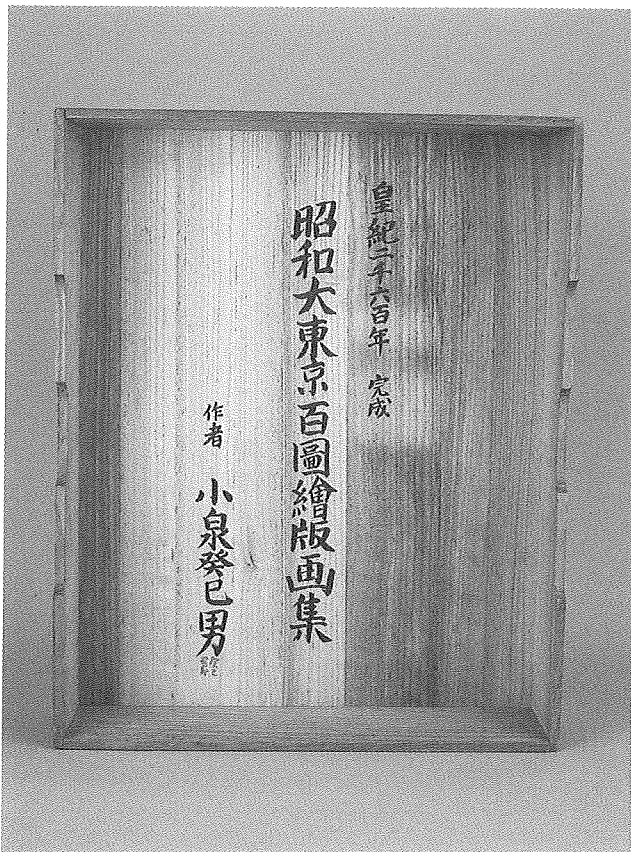 皇紀二千六百年 完成
昭和大東京百圖繪版画集
作者 小泉癸巳男